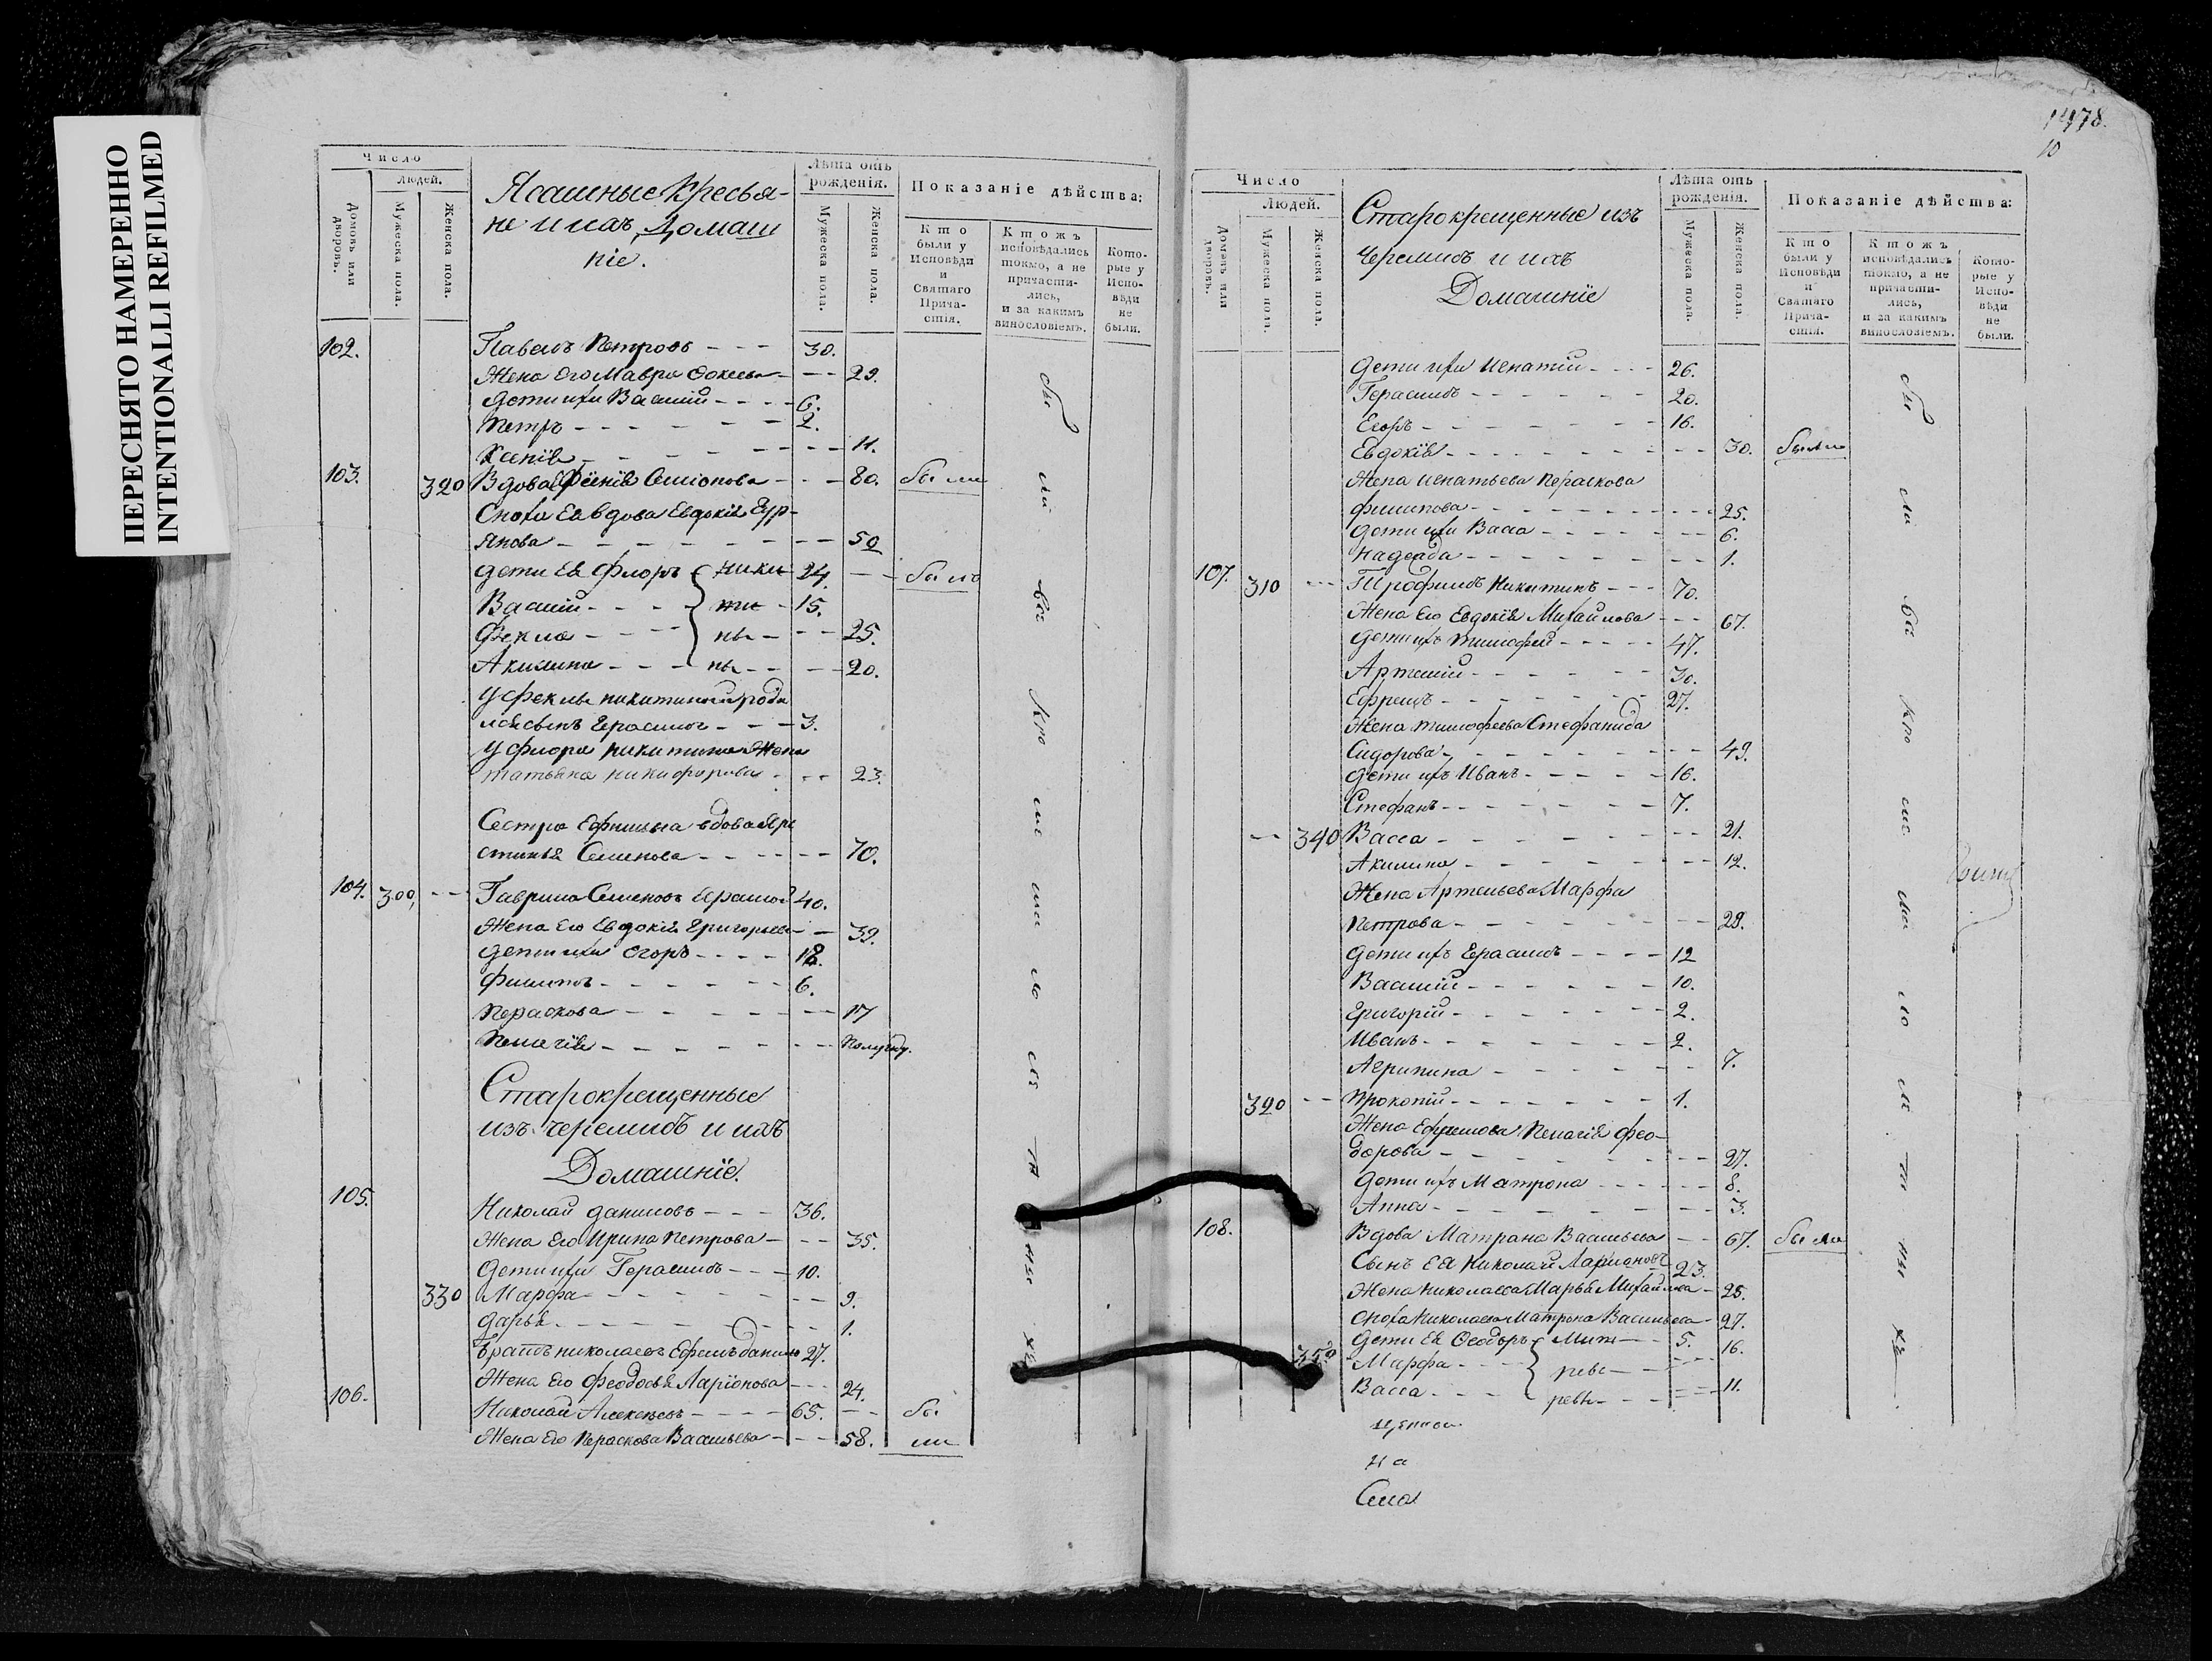 ПЕРЕСНЯТО НАМЕРЕННО
INTENTIONALLI REFILMED
Число
Людей.
Домовъ или дворовъ.
Мужеска пола.
Женска пола.
Ясашные Кресья-
не и ихъ Домаш
ніе.
Лѣта отъ рожденія.
Мужеска пола.
Женска пола.
Показаніе дѣйства:
Кто были у Исповѣди и Святаго Прича-стія.
Ктожъ исповѣдались токмо, а не причасти-лись, и за какимъ винословіемъ.
Кото-рые у Испо-вѣди не были.
102. Павелъ Петровъ - - - 30.
Жена его Мавра - - - 29.
Дети ихъ Василий - - - - 6.
Петръ - - - - - - 2.
Ксенія - - - - - - - 11.
103. 320 Вдова Семіонова - - - 80. были
Сноха Ея вдова Евдокія Гур-
янова - - - - - - - - 50
Дети Ея Флоръ { Ники 24. - - былъ
Василий - - - - ти - 15.
Фекла - - - - ны - - - 25.
Акилина - - - ны - - - - 20.
У Феклы никитиной роди
лся сынъ Герасимъ - - - 3.
У Флора никитина Жена
татьяна никифорова - - - 23.
Сестра вдова
Семенова - - - - - - 70.
104. 300, - - Гаврила Семеновъ 40.
Жена его Евдокія Григорьева - - 39.
Дети ихъ Егоръ - - - - 18.
Филипъ - - - - - - 6.
Пераскова - - - - - - - 17
Пелагія - - - - - - - Полугоду.
Старокрещенные
изъ черемисъ и ихъ
Домашніе.
105. Николай Даниловъ - - - 36.
Жена его Ирина Петрова - - - 35.
Дети ихъ Герасимъ - - - 10.
330 Марфа - - - - - - - - 9.
Дарья - - - - - - - - 1.
братъ николаевъ Ефремъ данило 27.
Жена его Феодосья Ларіонова - - - 24.
106. Николай Алексеевъ - - - - 65. - - бы
Жена его Пераскова Васильева - - - 58. ли
1478.
10
Число
Людей.
Домовъ или дворовъ.
Мужеска пола.
Женска пола.
Старокрещенные изъ
Черемисъ и ихъ
Домашніе
Лѣта отъ рожденія.
Мужеска пола.
Женска пола.
Показаніе дѣйства:
Кто были у Исповѣди и Святаго Прича-стія.
Ктожъ исповѣдались токмо, а не причасти-лись, и за какимъ винословіемъ.
Кото-рые у Испо-вѣди не были.
Дети ихъ Игнатій - - - - 26.
Герасимъ - - - - - - 20.
Егоръ - - - - - - - 16.
Евдокія - - - - - - - - - 30. были
Жена игнатьева Пераскова
филипова - - - - - - - - 25.
Дети ихъ Васса - - - - - - 6.
Надежда - - - - - - - - 1.
107. 310 - - Трофимъ Никитинъ - - - 70.
Жена его Евдокія Михайлова - - - 67.
Дети ихъ тимофей - - - - - 47.
Артемій - - - - - - 30.
Ефремъ - - - - - - 27.
Жена тимофеева Стефанида
Сидорова - - - - - - - - 49.
Дети ихъ Иванъ - - - - - 16.
Стефанъ - - - - - - - 7.
- - 340 Васса - - - - - - - - 21.
Акилина - - - - - - - - 12.
Жена Артемьева Марфа
Петрова - - - - - - - - 28.
Дети ихъ Герасимъ - - - - 12
Василій - - - - - - 10.
Григорій - - - - - - - 2.
Иванъ - - - - - - - 2.
Агрипина - - - - - - - 7.
320 - - Прокопій - - - - - - - 1.
Жена Ефремова Пелагія фео-
дорова - - - - - - - - 27.
Дети ихъ Матрона - - - - - - 8.
Анна - - - - - - - - 3.
108. Вдова Матрона Васильева - - 67. была
Сынъ Ея Николай Ларіоновъ 23.
Жена Николаева Марья Михайлова - 25.
Сноха Николаева Матрона Васильева - 27.
Дети Ея Феодоръ { Мит - - 5. 16.
350 Марфа - - - рев - - -
Васса - - - рев - - - - 11.
на